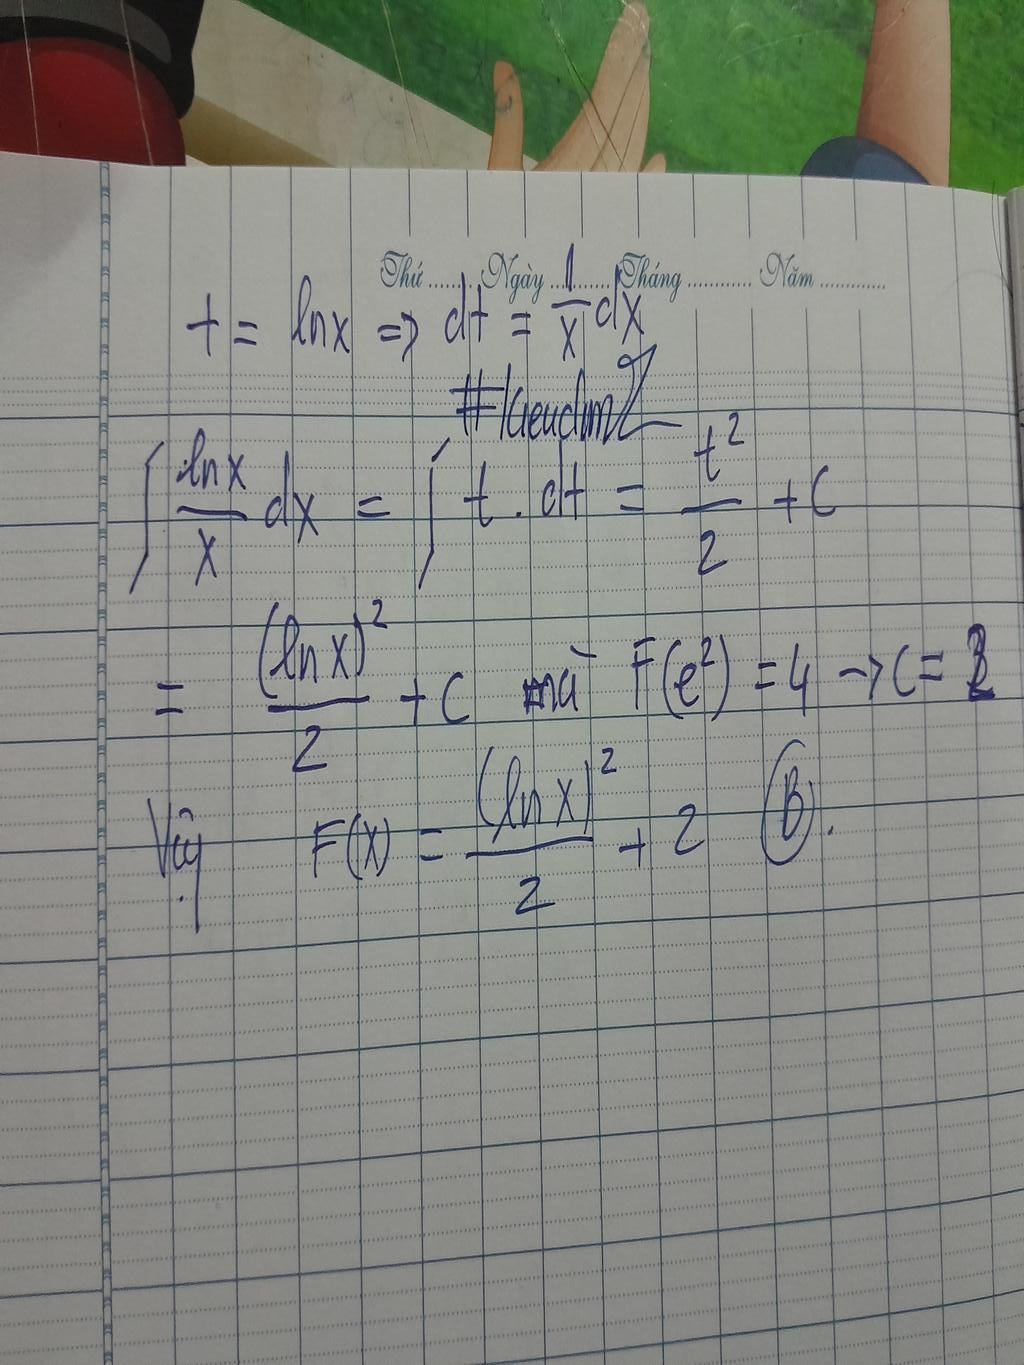 Thứ ........ Ngày .......... Tháng ............ Năm ............
t = lnx => dt = 1/x dx
#kieudim2
∫ lnx/x dx = ∫ t . dt = t²/2 + C
= (ln x)²/2 + C mà F(e²) = 4 → C = 2
Vậy F(x) = (ln x)²/2 + 2 (B).